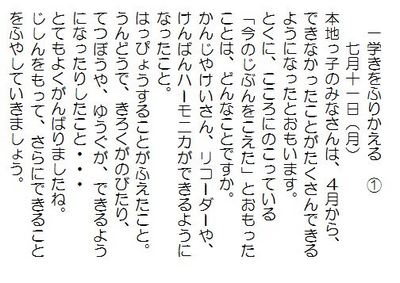 一学きをふりかえる　①
七月十一日（月）
本地っ子のみなさんは、４月から、
できなかったことがたくさんできる
ようになったとおもいます。
とくに、こころにのこっている
「今のじぶんをこえた」とおもった
ことは、どんなことですか。
かんじやけいさん、リコーダーや、
けんばんハーモニカができるように
なったこと。
はっぴょうすることがふえたこと。
うんどうで、きろくがのびたり、
てつぼうや、ゆうぐが、できるよう
になったりしたこと・・・
とてもよくがんばりましたね。
じしんをもって、さらにできること
をふやしていきましょう。